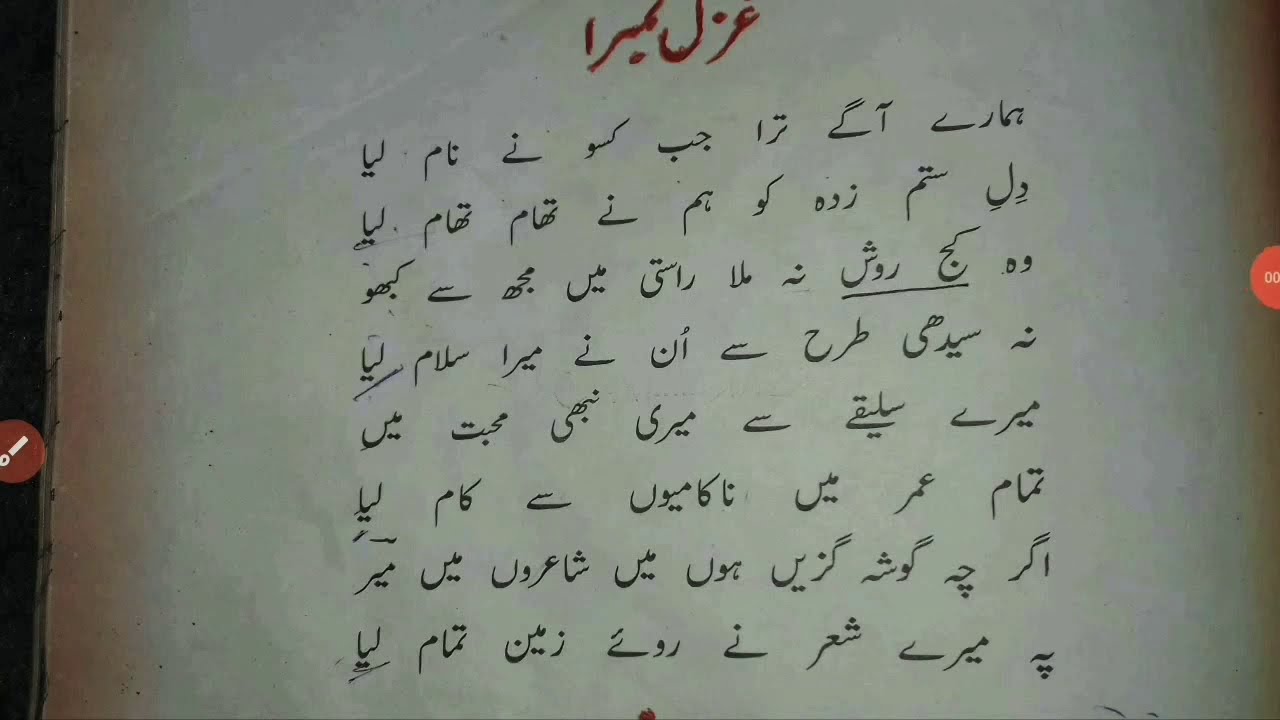 غزل نمبرا
ہمارے آگے ترا جب کسو نے نام لیا
دِلِ ستم زدہ کو ہم نے تھام تھام لیا
وہ کج روش نہ ملا راستی میں مجھ سے کبھو
نہ سیدھی طرح سے اُن نے میرا سلام لیا
میرے سلیقے سے میری نبھی محبت میں
تمام عمر میں ناکامیوں سے کام لیا
اگر چہ گوشہ گزیں ہوں میں شاعروں میں میر
پہ میرے شعر نے روئے زمین تمام لیا
00